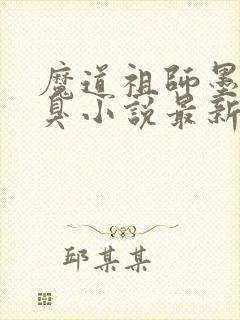 魔道祖師墨
臭小說最新
邱某某